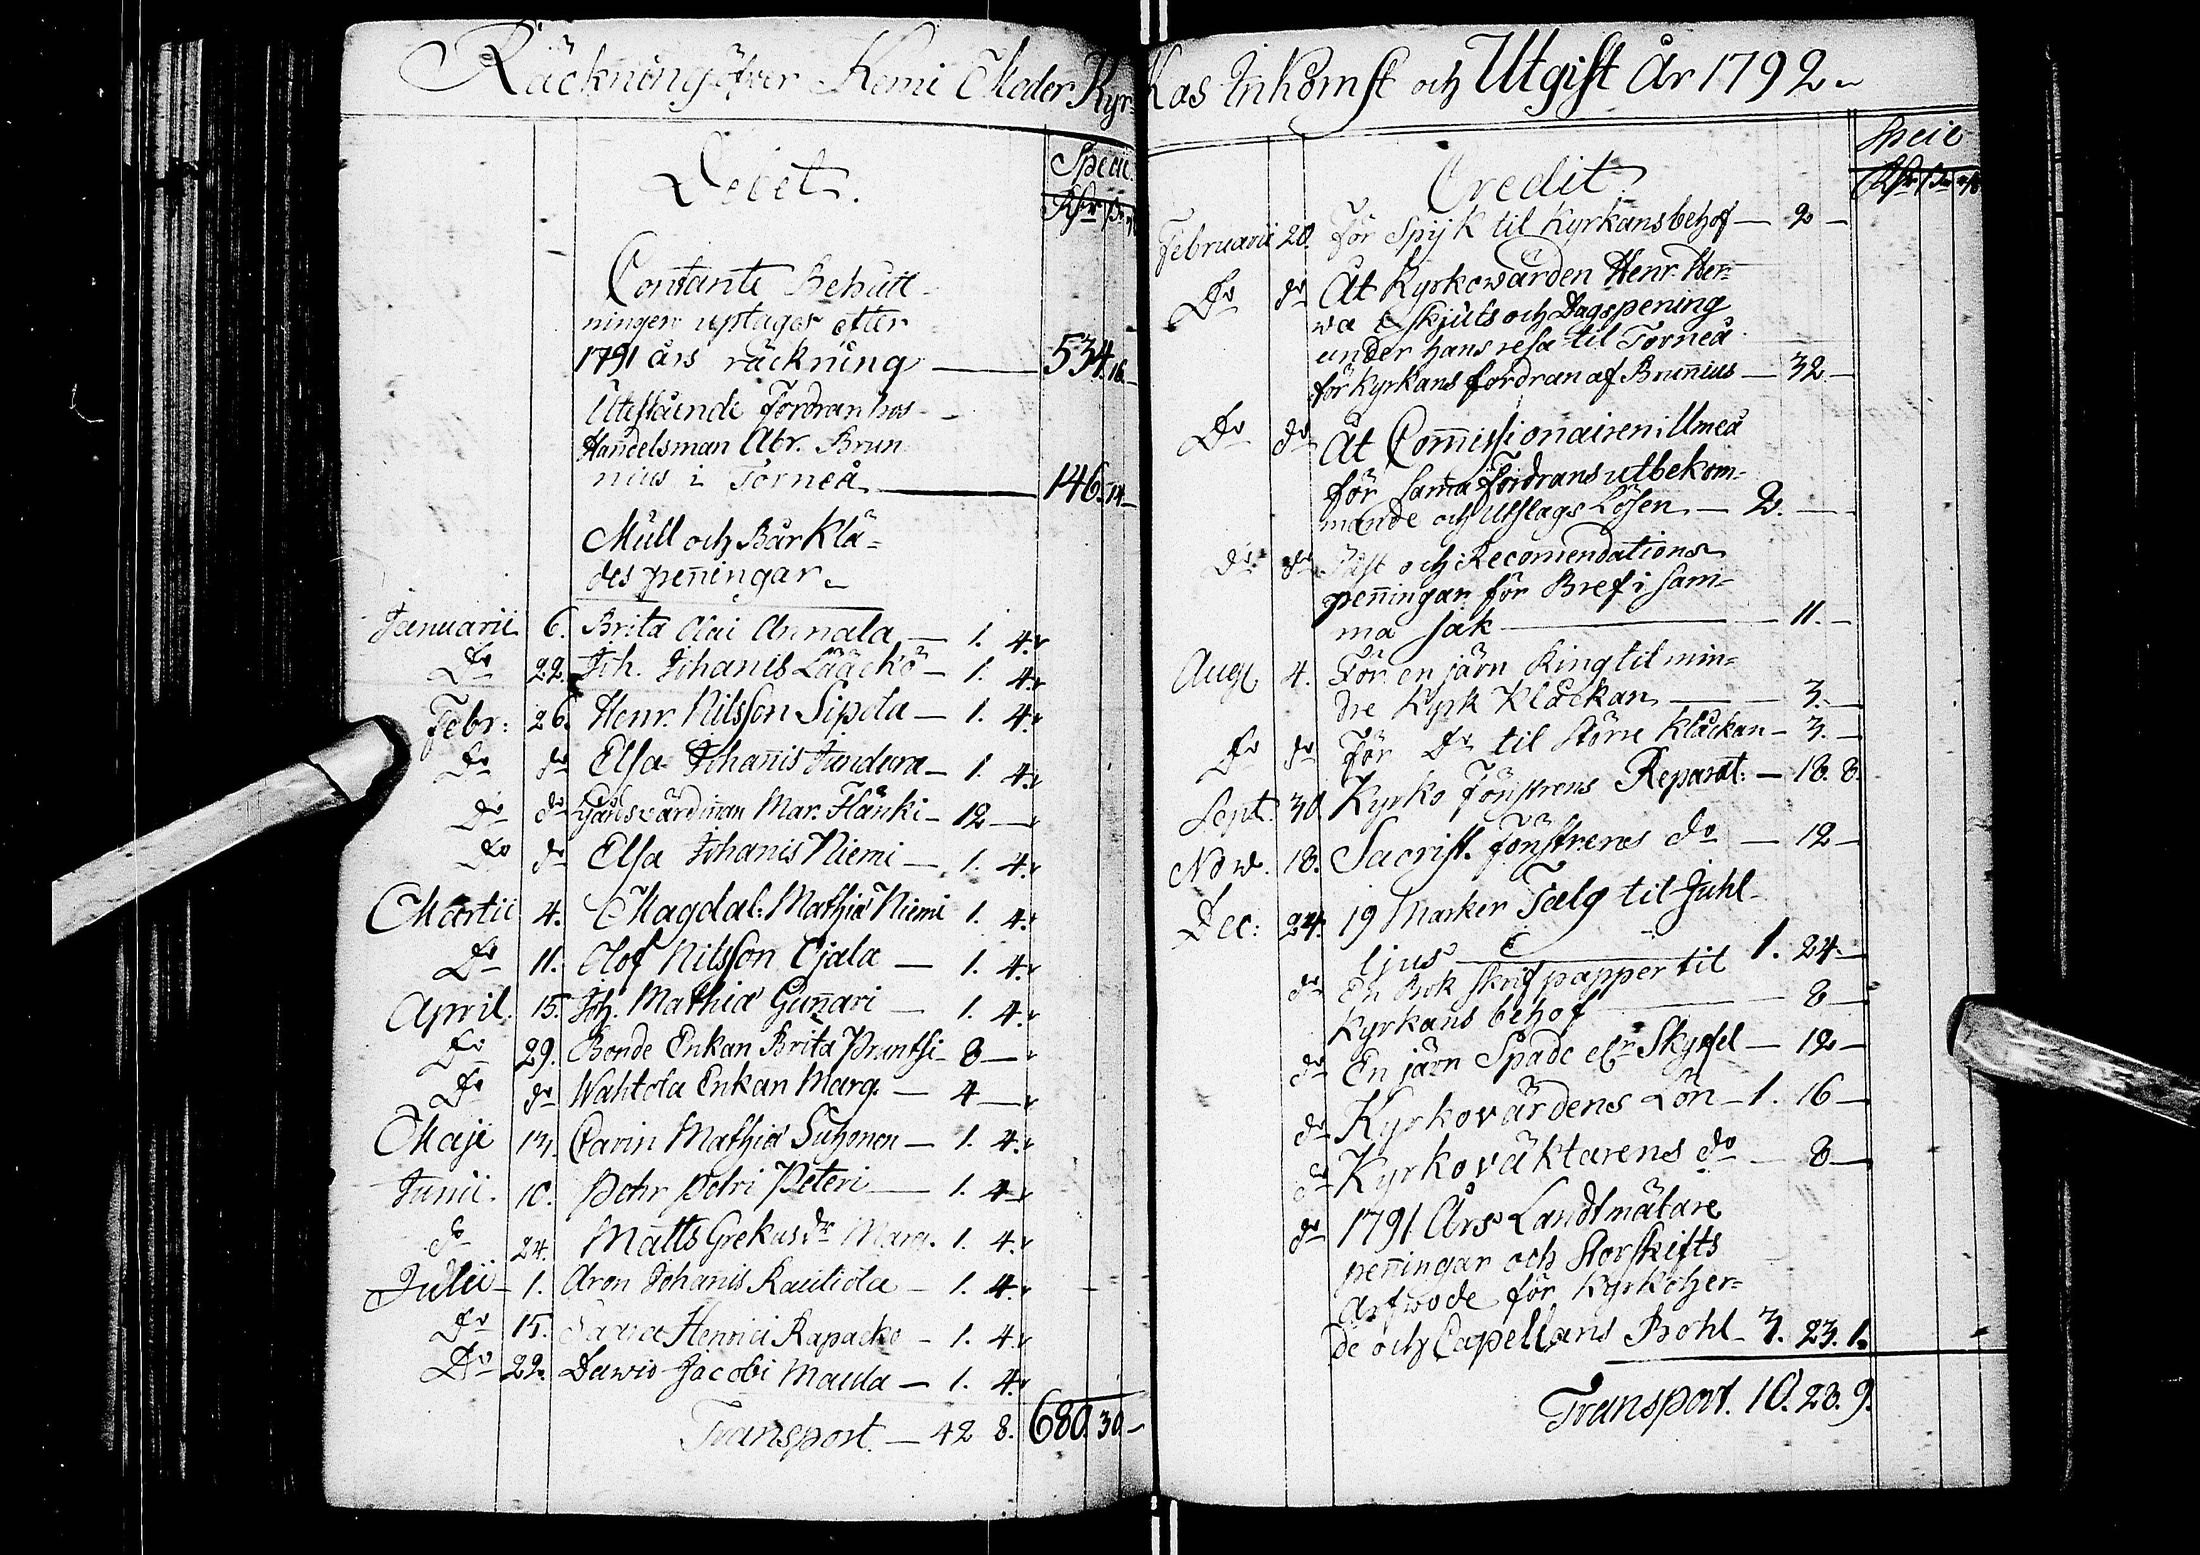 Räckning öfver Kemi Moder Kyr=
Debet.
Specie
Rdr ß r
Contante Behåll-
ningen uptages efter
1791 års räckning — 534. 16. —
Utestående Fordran hos
Handelsman Abr. Brun
nius i Torneå — 146. 14 —
Mull och Bårklä=
des penningar.
Januarii 6. Brita Olai Annala — 1. 4.
Do 22. Joh. Johanis Lääckö — 1. 4.
Febr: 26. Henr. Nilsson Sipola — 1. 4.
Do do Elsa Johannis Jundura — 1. 4.
Do do Mar. Hänki — 12 —
Do do Elsa Johanis Niemi — 1. 4.
Martii 4. Magdal: Mathiæ Niemi 1. 4.
Do 11. Olof Nilsson Ojala — 1. 4.
April. 15. Joh. Mathiæ Gunnari — 1. 4.
Do 29. Bonde Enkan Brita Pruntsi — 8 —
Do do Wahtola Enkan Marg. — 4 —
Maji 14. Carin Mathiæ Suhonen — 1. 4.
Junii. 10. Pehr Petri Peteri — 1. 4
do 24. Matts Grekus dr Marg. 1. 4.
Julii — 1. Aron Johanis Rautiola — 1. 4.
Do 15. Henrici Rapacko — 1. 4.
Do 22. David Jacobi Maula — 1. 4.
Transport — 42 8. 680. 30. —
kas Inkomst och Utgift År 1792.
Credit.
Specie
Rdr ß r
Februarii 20. För Spijk til Kyrkans behof — 2 —
Do do Åt Kyrkowärden Henr. Her-
wa Skjuts och Dagspening
under hans resa til Torneå
för Kyrkans fordran af Brunnius — 32 —
Do do Åt Commissionairen i Umeå
för samma Fordrans utbekom-
mande och Utslags Lösen — 2. —
do do Post och Recomendations
penningar för Bref i sam-
ma sak — 11. —
Aug. 4. För en järn Ring til min=
dre Kyrk Klåckan — 3. —
Do do För Do til större Klåckan — 3. —
Sept. 30. Kyrko Fönstrens Reparat: — 18. 8.
Now. 18. Sacrist. fönstrens do — 12 —
Dec: 24. 19 Marker Talg til Juhl-
ljus — 1. 24. —
do En Bok skrif papper til
Kyrkans behof — 8 —
do En järn Spade elr Skyfel — 12 —
do Kyrkovärdens Lön — 1. 16 —
do Kyrkoväktarens do — 8 —
do 1791 Års Landtmätare
penningar och Storskifts
Arfwode för Kyrkoher=
de och Capellans Bohl — 3. 23. 1.
Transport. 10. 28. 9.